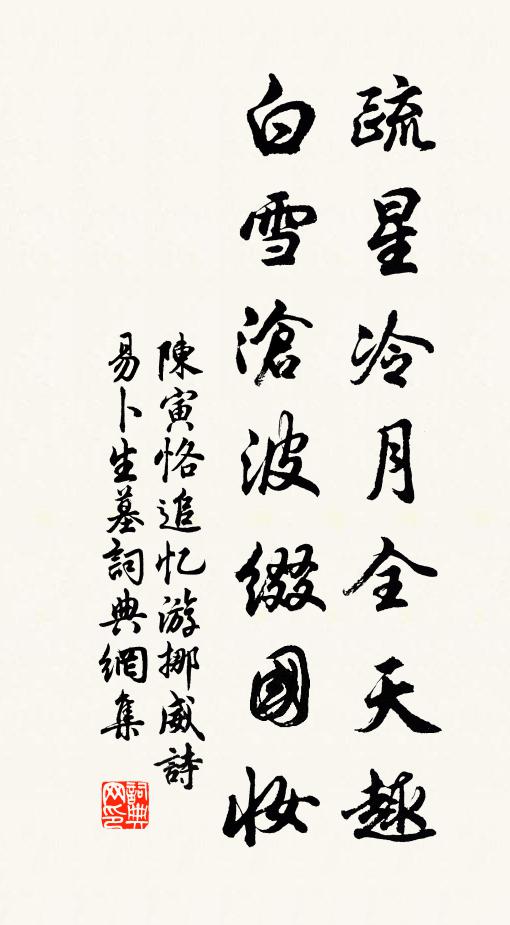 疏星冷月全天趣
白雪滄波綴國妆
陳寅恪追忆游挪威詩
易卜生墓詞典網集
詞典网印